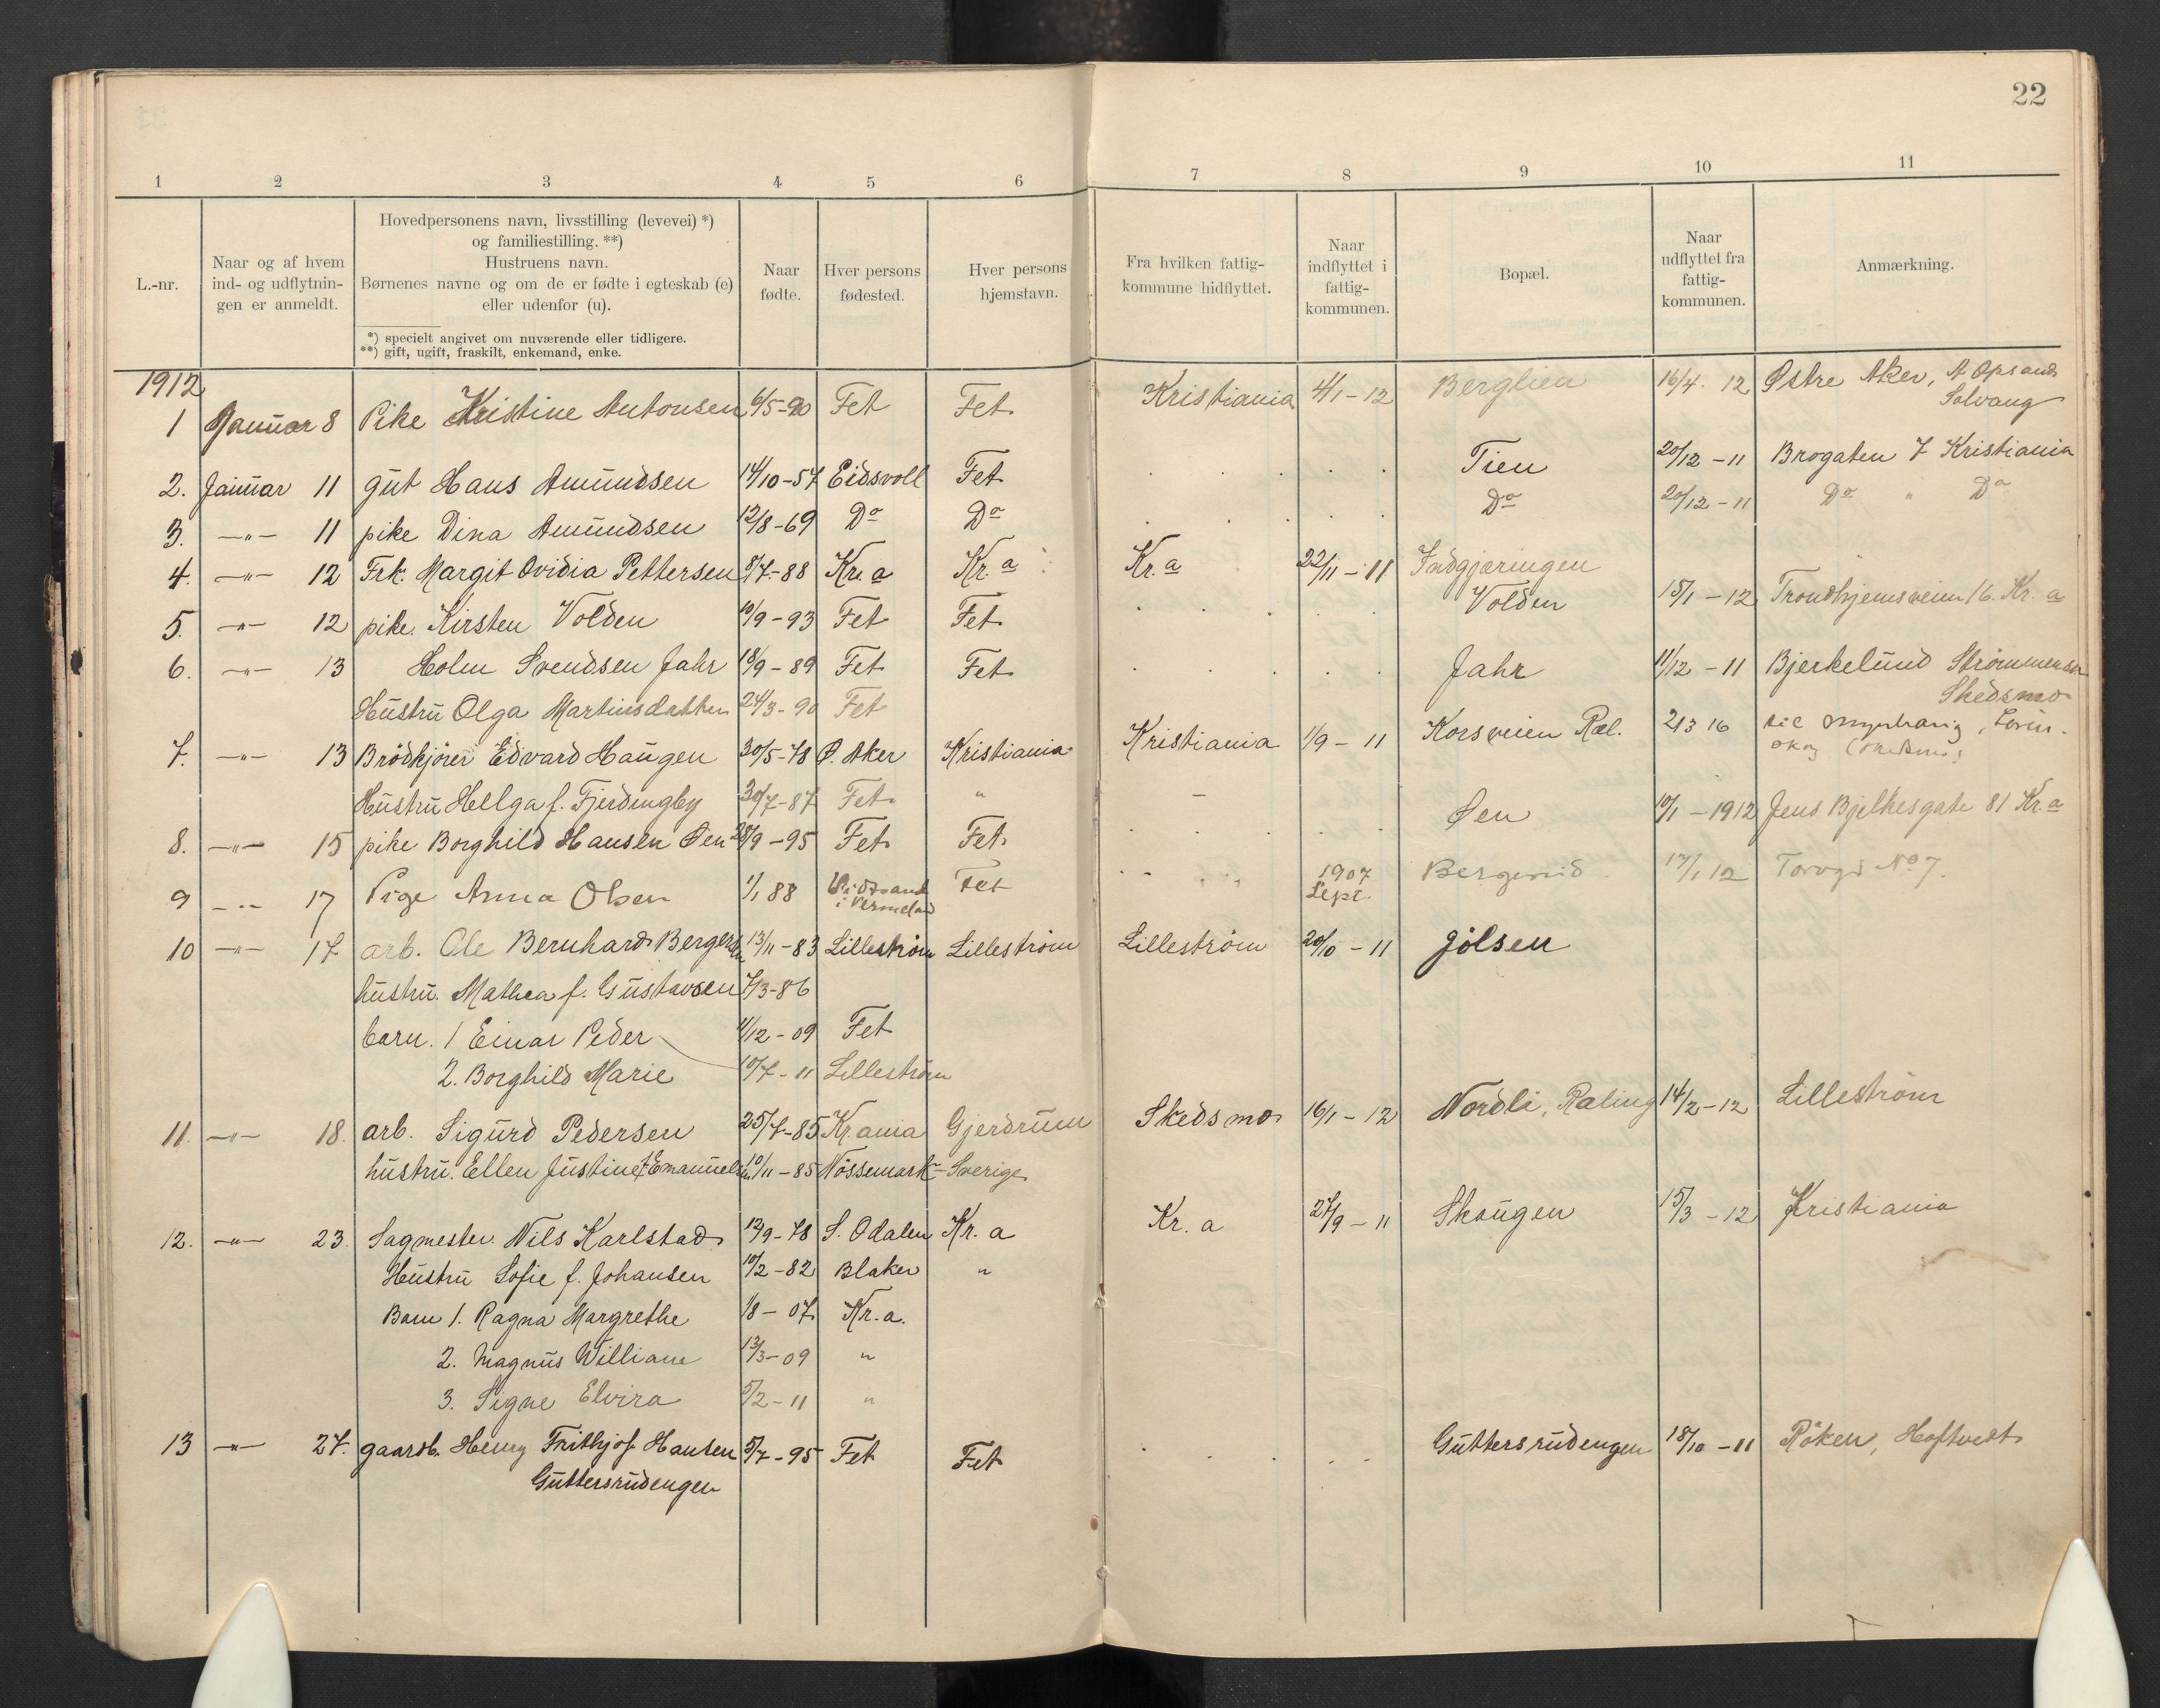 22
1 2 3 4 5 6 7 8 9 10 11
L.-nr.
Naar og af hvem
ind- og udflytnin-
gen er anmeldt.
Hovedpersonens navn, livsstilling (levevei) *)
og familiestilling. **)
Hustruens navn.
Børnenes navne og om de er fødte i egteskab (e)
eller udenfor (u).
*) specielt angivet om nuværende eller tidligere.
**) gift, ugift, fraskilt, enkemand, enke.
Naar
fødte.
Hver persons
fødested.
Hver persons
hjemstavn.
Fra hvilken fattig-
kommune hidflyttet.
Naar
indflyttet i
fattig-
kommunen.
Bopæl.
Naar
udflyttet fra
fattig-
kommunen.
Anmærkning.
1912
1 Januar 8 Pike Kristine Antonsen 6/5-90 Fet Fet Kristiania 4/1-12 Berglien 16/4. 12 Østre Aker, A Opsand
Solvang
2. Januar 11 gut Hans Amundsen 14/10-57 Eidsvoll Fet . . . . Tien 20/12-11 Brogaten 7 Kristiania
3. -"- 11 pike Dina Amundsen 12/8-69 Do Do . . . . Do 20/12-11 Do " Do
4. -"- 12 Frk. Margit Ovidia Pettersen 8/7-88 Kr.a Kr.a Kr.a 22/11-11 Indgjæringen
5. -"- 12 pike. Kirsten Volden 10/9-93 Fet Fet . . . . Volden 15/1-12 Trondhjemsveien 16. Kr.a
6. -"- 13 Holm Svendsen Jahr 18/9-89 Fet Fet . . . . Jahr 11/12-11 Bjerkelund Strømmen
Skedsmo
Hustru Olga Martinsdatter 24/3-90 Fet
7. -"- 13 Brødkjører Edvard Haugen 30/5-78 Ø. Aker Kristiania Kristiania 1/9-11 Korsveien Ræl. 21 3 16 til
Hustru Helga f. Fjerdingby 30/7-87 Fet " -
8. -"- 15 pike Borghild Hansen Øen 28/9-95 Fet Fet . . . . Øen 10/1-1912 Jens Bjelkesgate 81 Kr.a
9 -"- 17 Pige Anna Olsen 1/1 88 i Vermeland Fet 1907 Sept. 17/1 12 Torvgd No 7.
10 -"- 17 arb. Ole Bernhard Bergersen 13/11-83 Lillestrøm Lillestrøm Lillestrøm 20/10-11 Jølsen
hustru. Mathea f. Gustavsen 7/3-86
barn. 1 Einar Peder 4/12-09 Fet
2. Borghild Marie 10/7-11 Lillestrøm
11. -"- 18. arb. Sigurd Pedersen 25/7-85 Kr.ania Gjerdrum Skedsmo 16/1-12 Nordli, Ræling 14/2-12 Lillestrøm
hustru. Ellen Justine f. Emanuelsen 10/11-85 Nössemark- Sverige
12. -"- 23. Sagmester. Nils Karlstad 12/9-78 S. Odalen Kr.a Kr.a 27/9-11 Skaugen 15/3-12 Kristiania
Hustru Sofie f. Johansen 10/2-82 Blaker "
Barn 1. Ragna Margrethe 1/8-07 Kr.a.
2. Magnus William 13/3-09 "
3. Signe Elvira 5/2-11 "
13 -"- 27. gaardb. Henry Frithjof Hansen 5/7-95 Fet Fet . . . . Guttersrudengen 18/10-11 Røken, Hoftvedt
Guttersrudengen